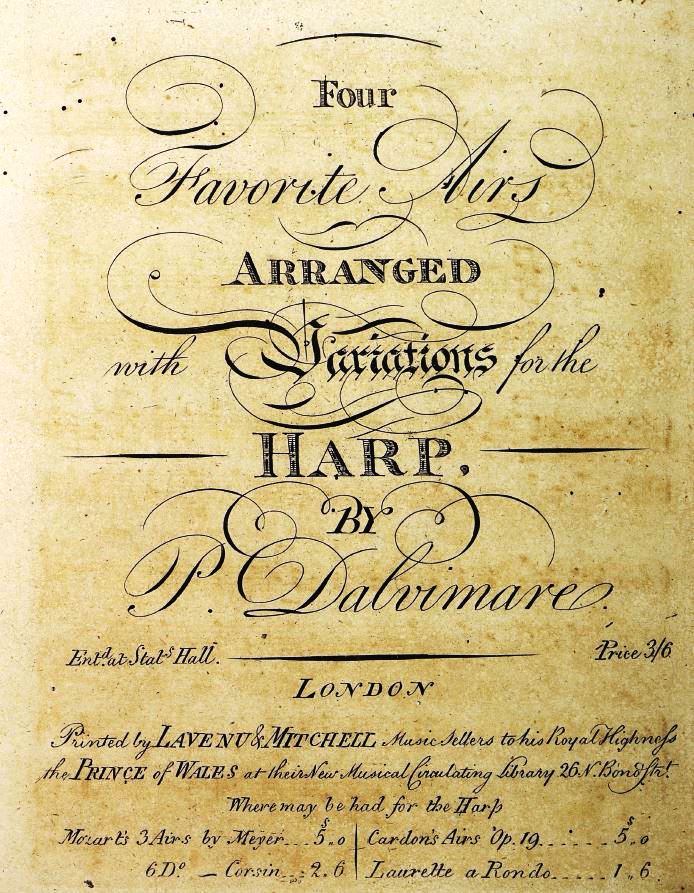 Four
Favorite Airs
ARRANGED
with Variations for the
HARP,
BY
P. Dalvimare.
Ent.d at Stat.s Hall. Price 3/6
LONDON
Printed by LAVENU & MITCHELL Music Sellers to his Royal Highness
the PRINCE of WALES at their New Musical Circulating Library 26 N. Bond Str.t
Where may be had for the Harp
Mozart's 3 Airs by Meyer... 5s..0 | Cardon's Airs Op. 19...... 5s..0
6 Do — Corsin... 2..6 | Laurette a Rondo..... 1..6